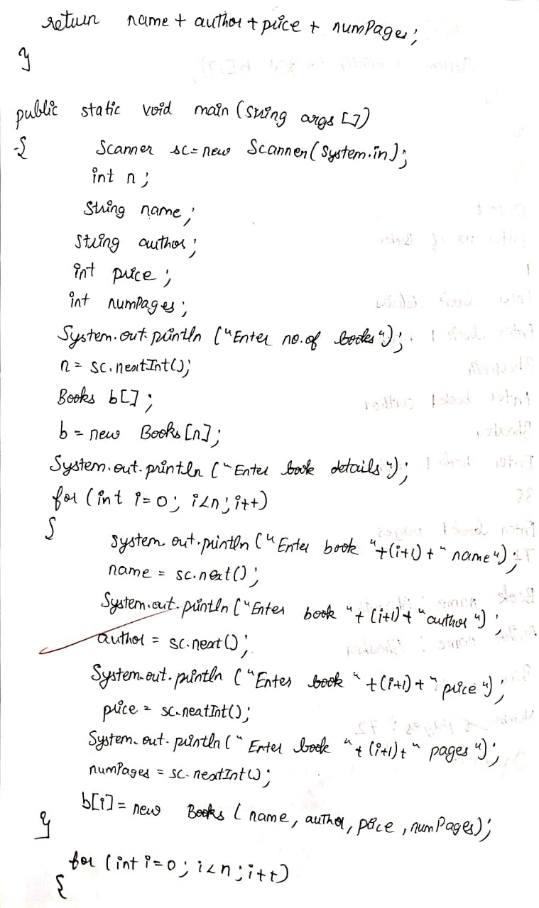 return name + author + price + numPages;
}
public static void main (String args [])
{ Scanner sc = new Scanner(System.in);
int n;
String name;
String author;
int price;
int numPages;
System.out.println ("Enter no.of books");
n = sc.nextInt();
Books b[];
b = new Books[n];
System.out.println ("Enter book details");
for (int i=0; i<n; i++)
{
System.out.println ("Enter book "+(i+1)+" name");
name = sc.next();
System.out.println ("Enter book "+(i+1)+"author");
author = sc.next();
System.out.println ("Enter book "+(i+1)+" price");
price = sc.nextInt();
System.out.println (" Enter book "+(i+1)+" pages");
numPages = sc.nextInt();
b[i] = new Books (name, author, price, numPages);
}
for (int i=0; i<n; i++)
{